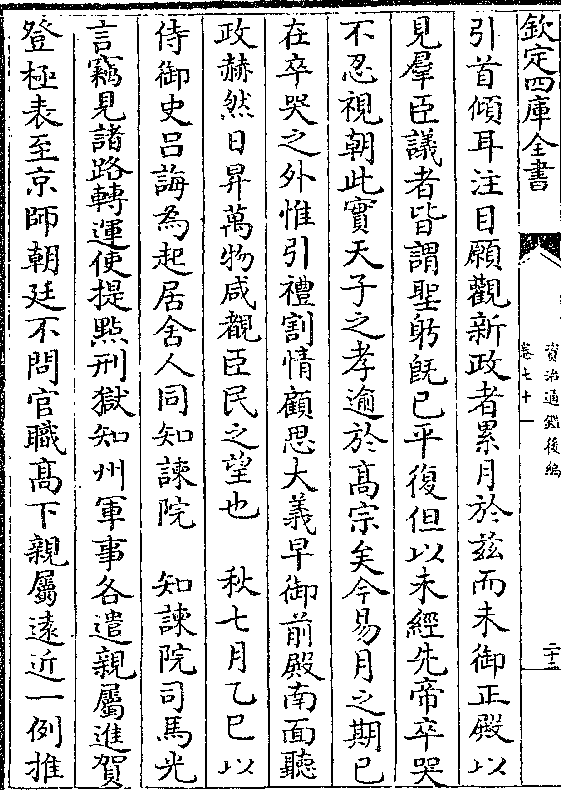 欽定四庫全書
資治通鑑後編
卷七十一
引首傾耳注目願觀新政者累月於兹而未御正殿以
見羣臣議者皆謂聖躬既已平復但以未經先帝卒哭
不忍視朝此實天子之孝逾於髙宗矣今易月之期已
在卒哭之外惟引禮割情顧思大義早御前殿南面聽
政赫然日昇萬物咸覩臣民之望也　秋七月乙巳以
侍御史吕誨為起居舍人同知諫院　知諫院司馬光
言竊見諸路轉運使提㸃刑獄知州軍事各遣親屬進賀
登極表至京師朝廷不問官職髙下親屬逺近一例推